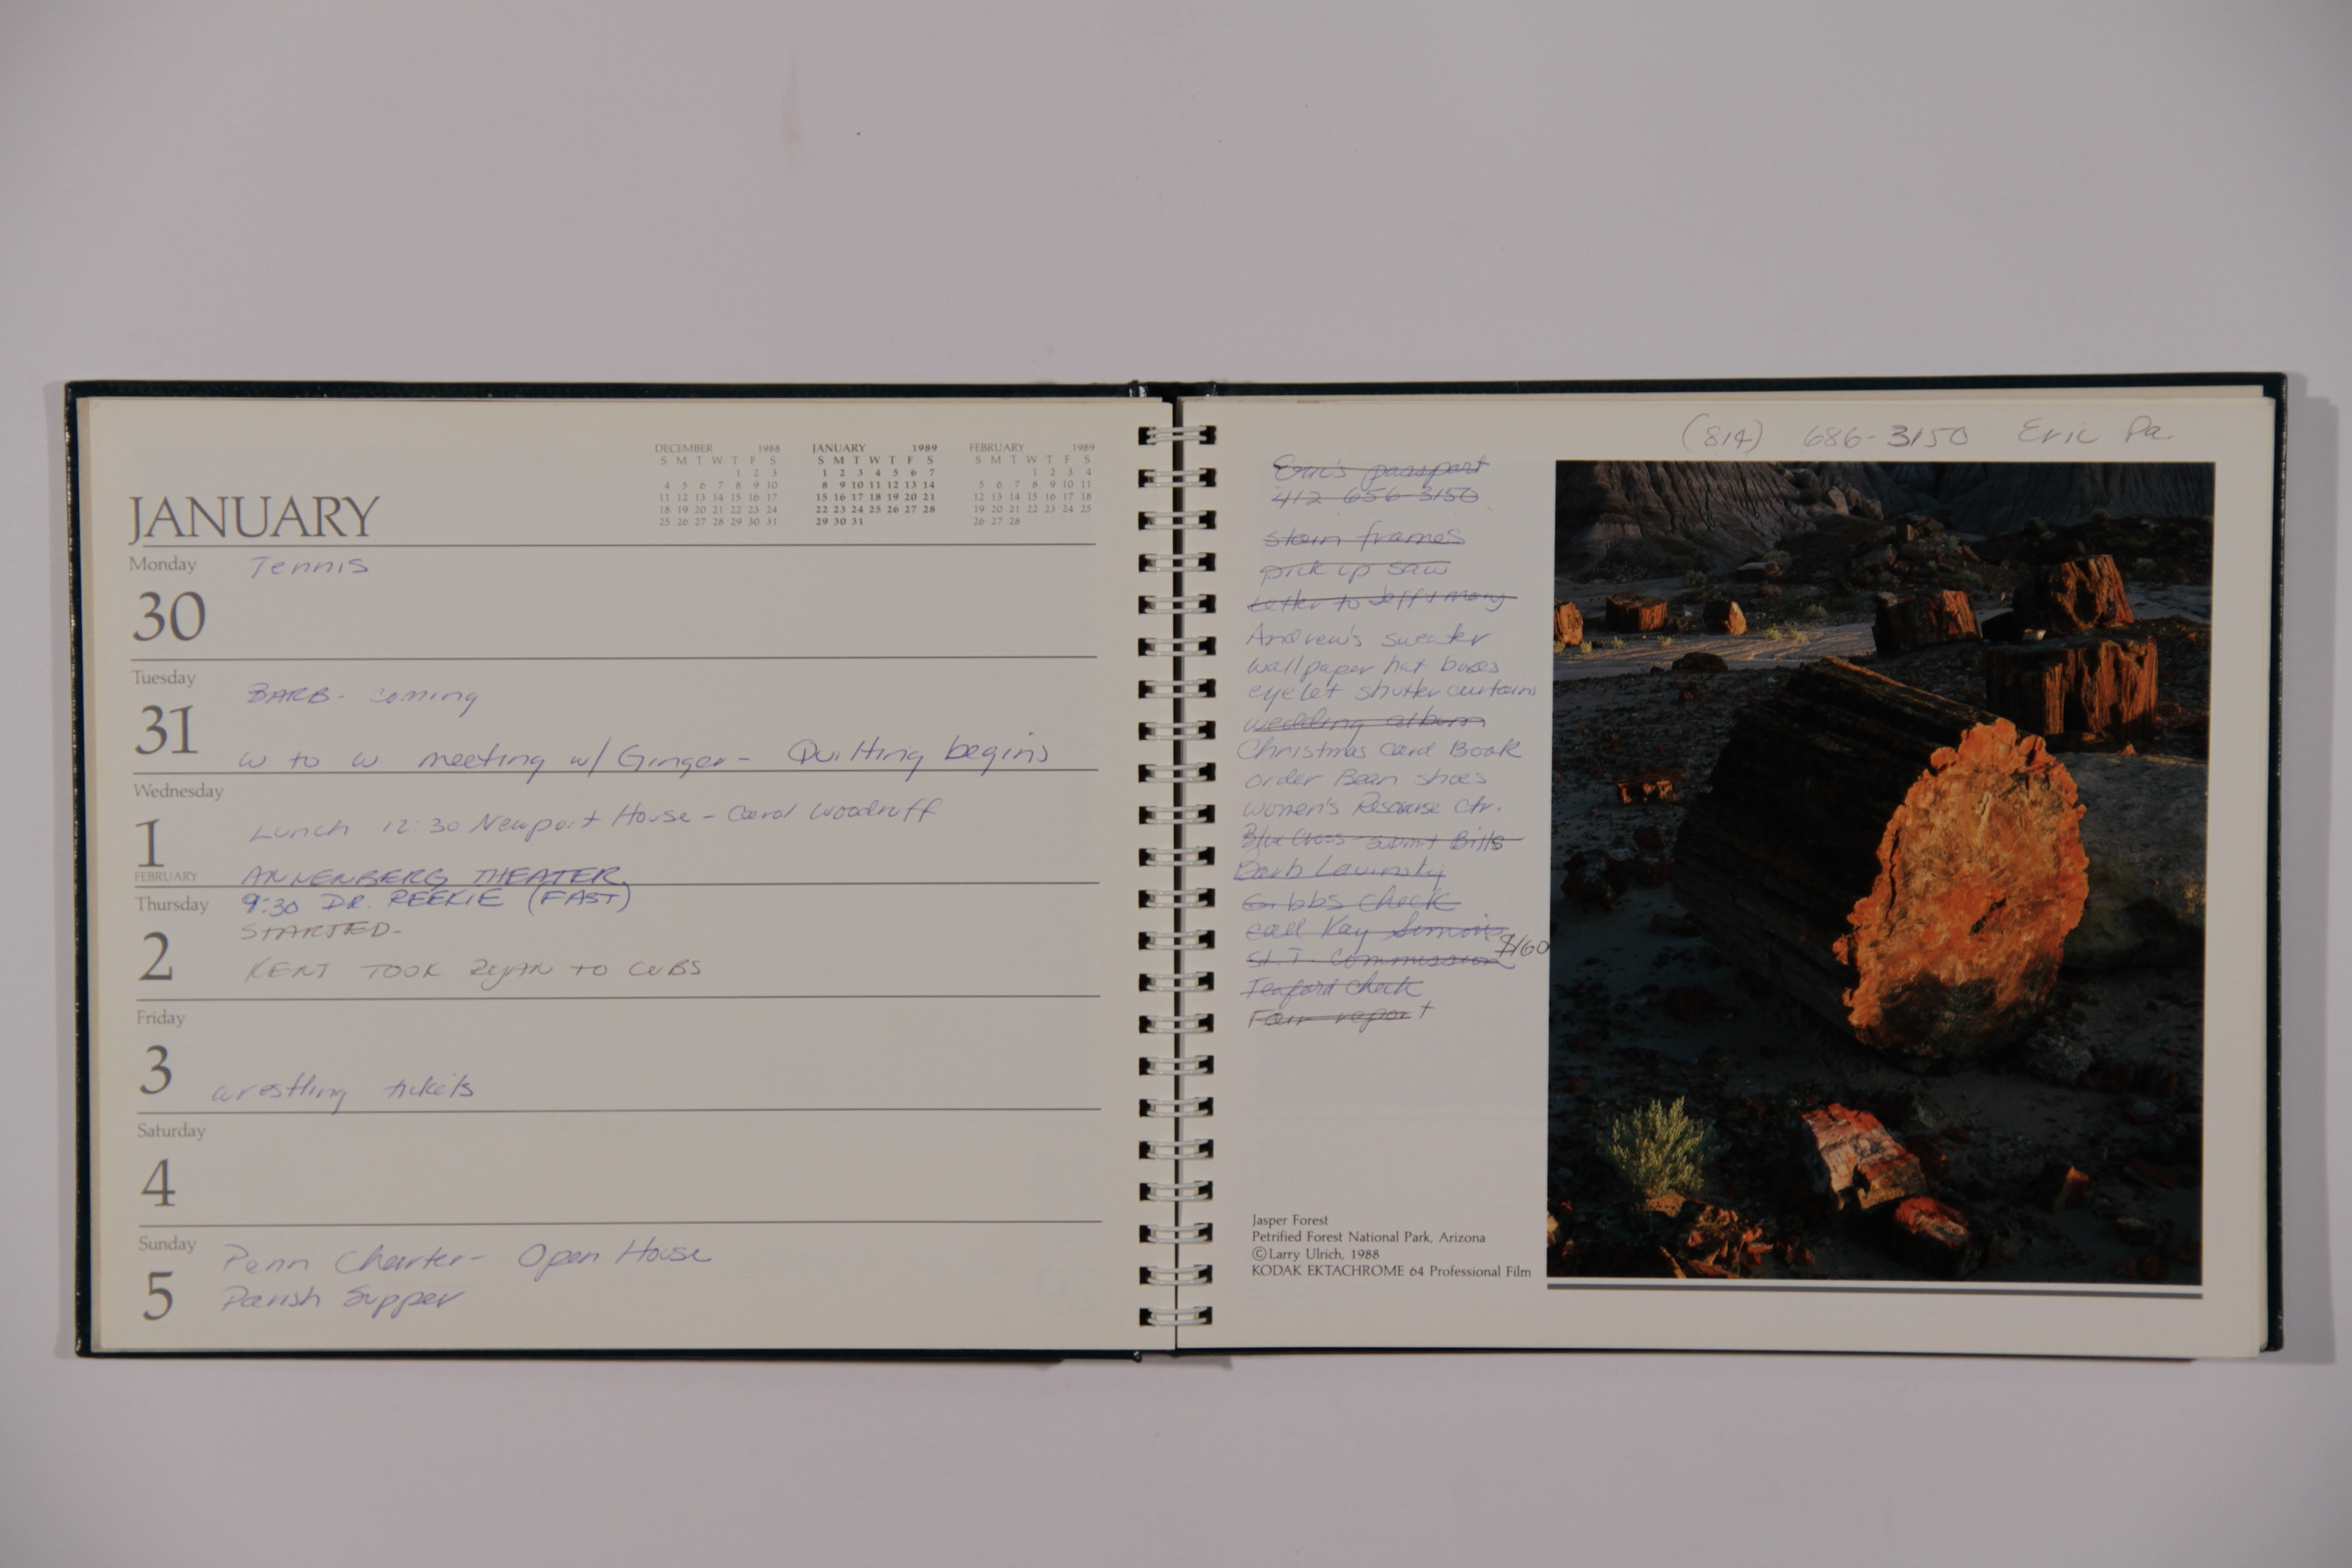 DECEMBER 1988
S M T W T F S
1 2 3
4 5 6 7 8 9 10
11 12 13 14 15 16 17
18 19 20 21 22 23 24
25 26 27 28 29 30 31
JANUARY 1989
S M T W T F S
1 2 3 4 5 6 7
8 9 10 11 12 13 14
15 16 17 18 19 20 21
22 23 24 25 26 27 28
29 30 31
FEBRUARY 1989
S M T W T F S
1 2 3 4
5 6 7 8 9 10 11
12 13 14 15 16 17 18
19 20 21 22 23 24 25
26 27 28
JANUARY
Monday
30
Tennis
Tuesday
31
BARB - coming
w to w. meeting w/ Ginger - Quilting begins
Wednesday
1
FEBRUARY
Lunch 12:30 Newport House - Carol Woodruff
ANNENBERG THEATER
Thursday
2
9:30 DR. REEKIE (FAST)
STARTED-
KENT TOOK RYAN TO CUBS
Friday
3
wrestling tickets
Saturday
4
Sunday
5
Penn Charter - Open House
Parish Supper
(814) 686-3150 Eric Pa.
Eric's passport
412 656-3150
stain frames
pick up saw
Letter to Jeff & Mary
Andrew's sweater
wallpaper hat boxes
eyelet shutter curtains
wedding album
Christmas Card Book
order Bean shoes
women's Resourse Ctr.
Blue Cross - submit Bills
Barb Lavinsky
Gibbs check
call Kay Simons
St. T. Commission $160
Teaford check
Fair report
Jasper Forest
Petrified Forest National Park, Arizona
©Larry Ulrich, 1988
KODAK EKTACHROME 64 Professional Film